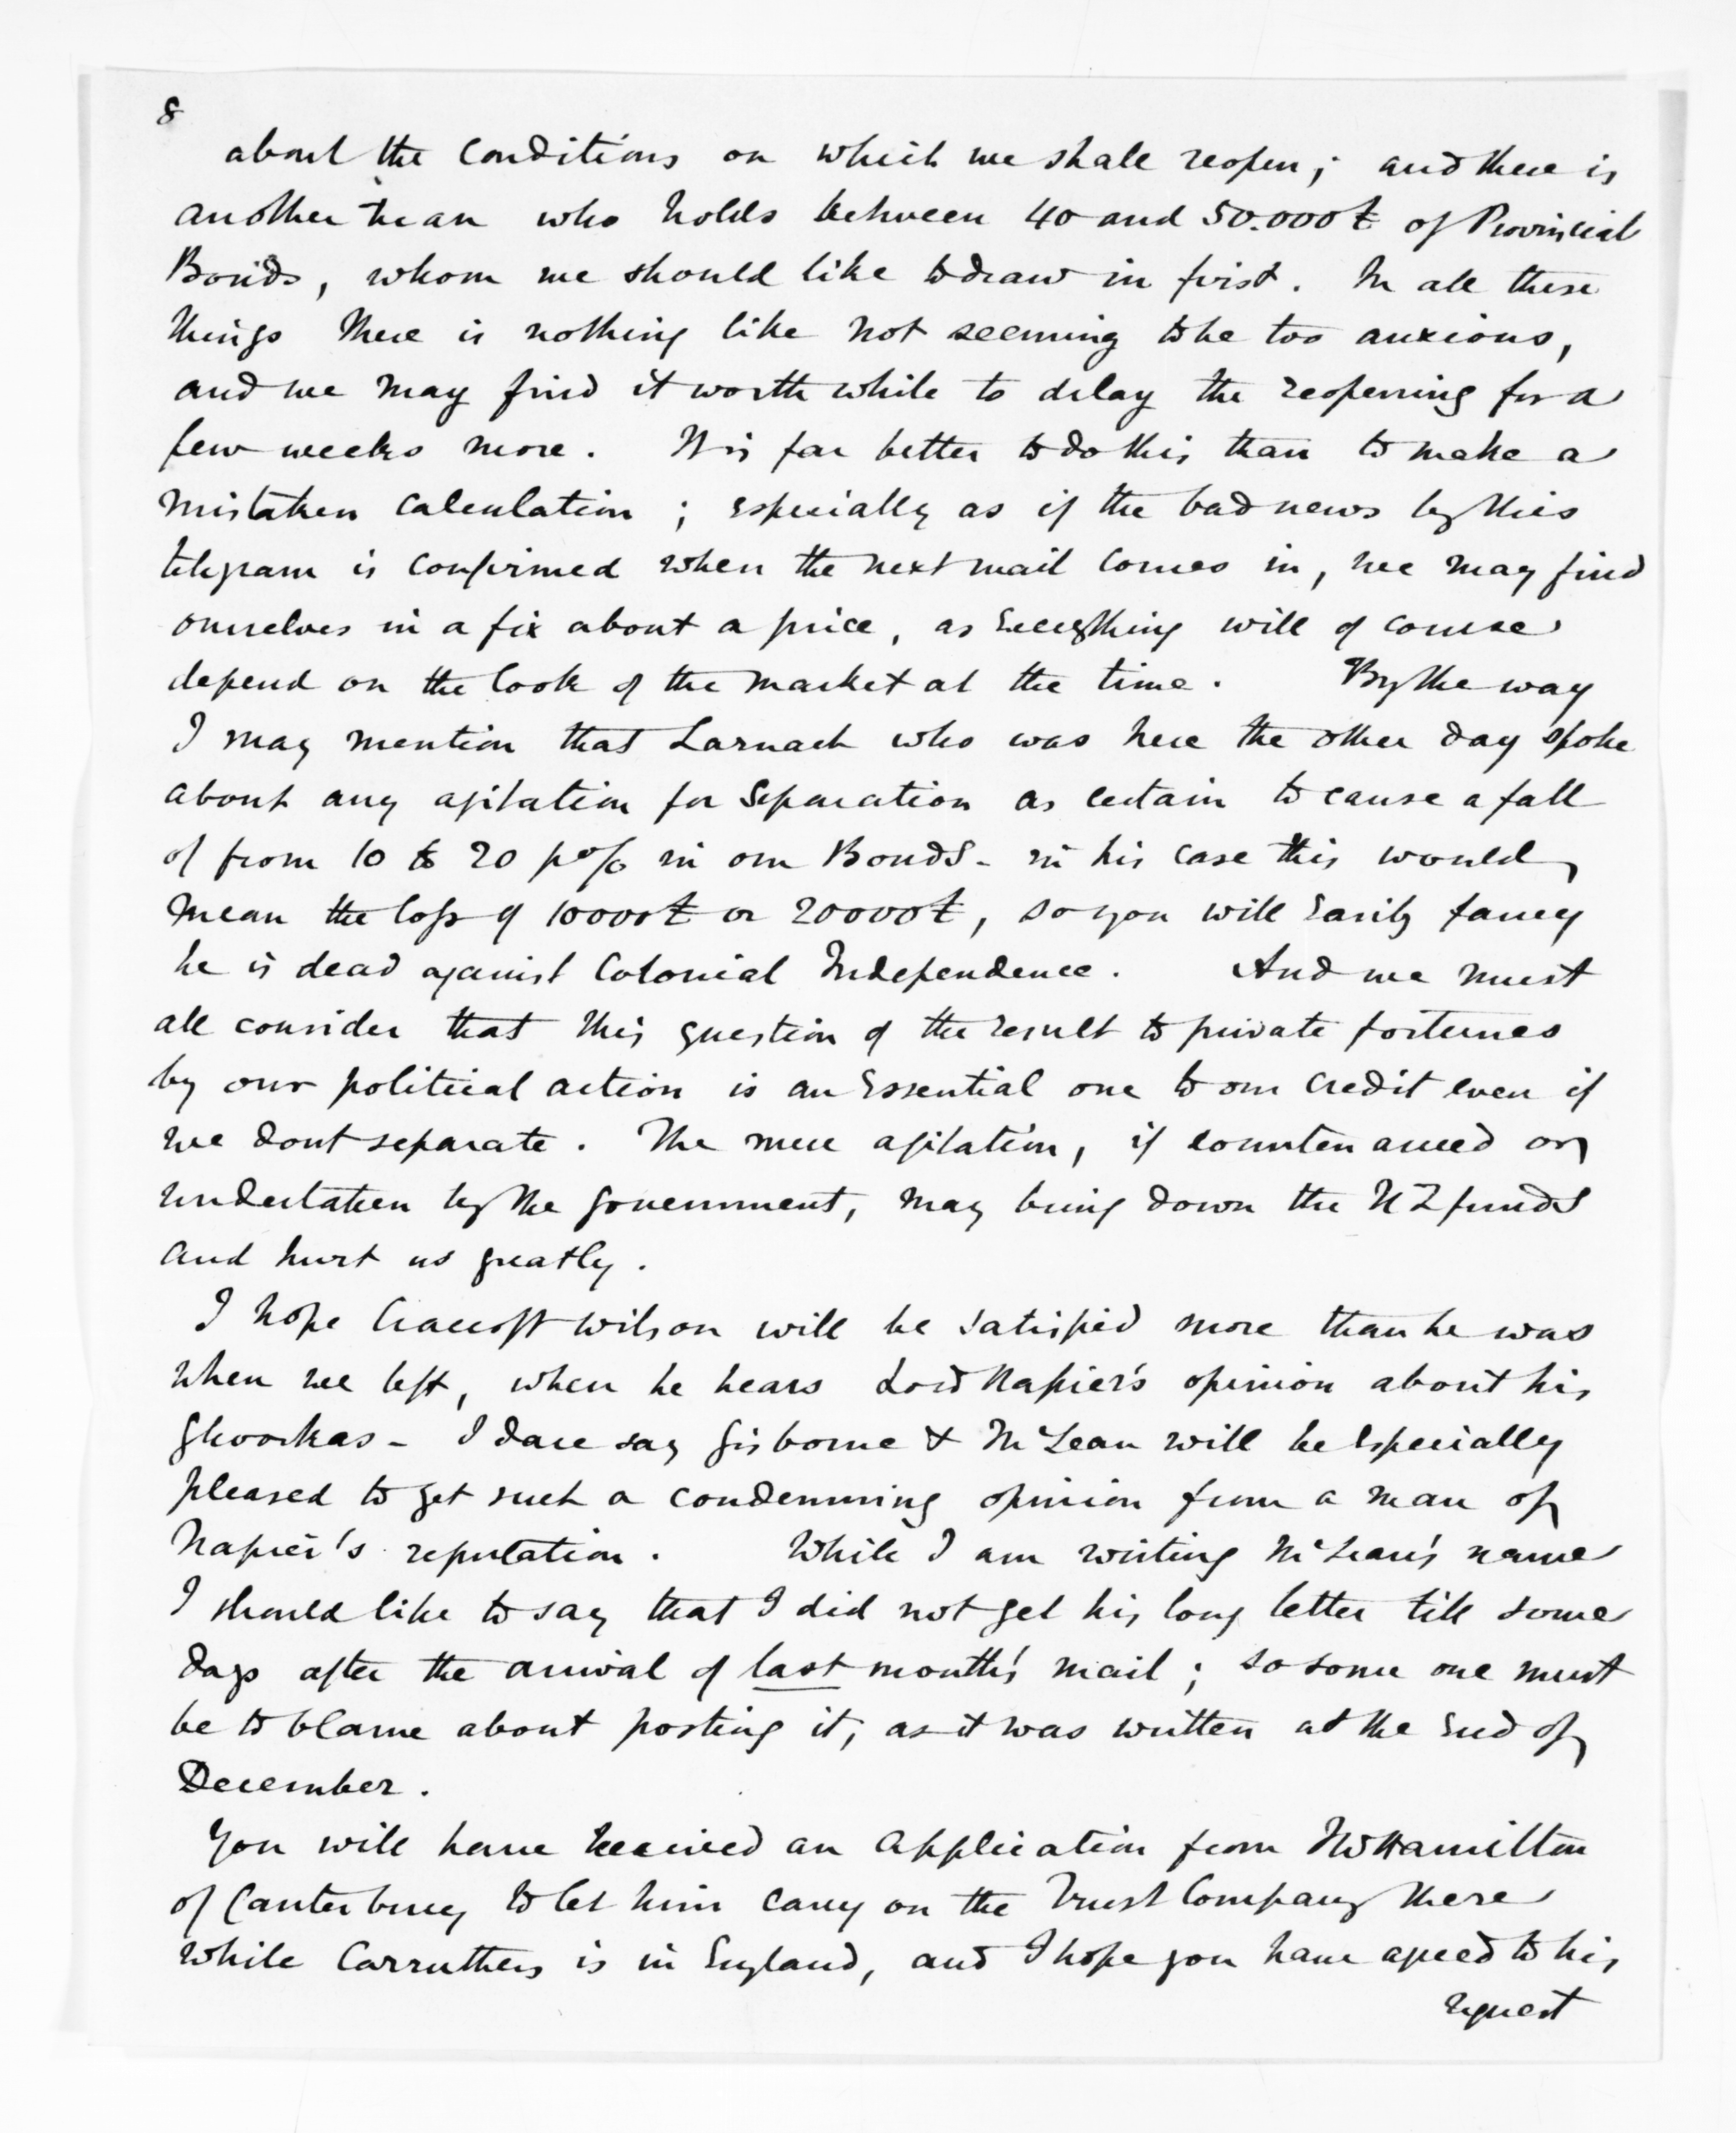 8
about the conditions on which we shall reopen; and there is
another man who holds between 40 and 50.000£ of Provincial
Bonds, whom we should like to draw in first. In all these
things there is nothing like not seeming to be too anxious,
and we may find it worth while to delay the reopening for a
few weeks more. It is far better to do this than to make a
mistaken calculation; especially as if the bad news by this
telegram is confirmed when the next mail comes in, we may find
ourselves in a fix about a price, as everything will of course
depend on the look of the market at the time. By the way
I may mention that Larnach who was here the other day spoke
about any agitation for Separation as certain to cause a fall
of from 10 to 20 p% in our Bonds - in his case this would
mean the loss of 10000£ or 20000£, so you will easily fancy
he is dead against Colonial Independence. And we must
all consider that this question of the result to private fortunes
by our political action is an essential one to our credit even if
we dont separate. The mere agitation, if countenanced or
undertaken by the Government, may bring down the NZ funds
and hurt us greatly.
I hope Cracroft Wilson will be satisfied more than he was
when we left, when he hears Lord Napier's opinion about his
Ghoorkas - I dare say Gisborne & McLean will be especially
pleased to get such a condemning opinion from a man of
Napier's reputation. While I am writing McLean's name
I should like to say that I did not get his long letter till some
days after the arrival of last month's mail; so some one must
be to blame about posting it, as it was written at the end of
December.
You will have received an application from JW Hamilton
of Canterbury to let him carry on the Trust Company there
while Carruthers is in England, and I hope you have agreed to his
request